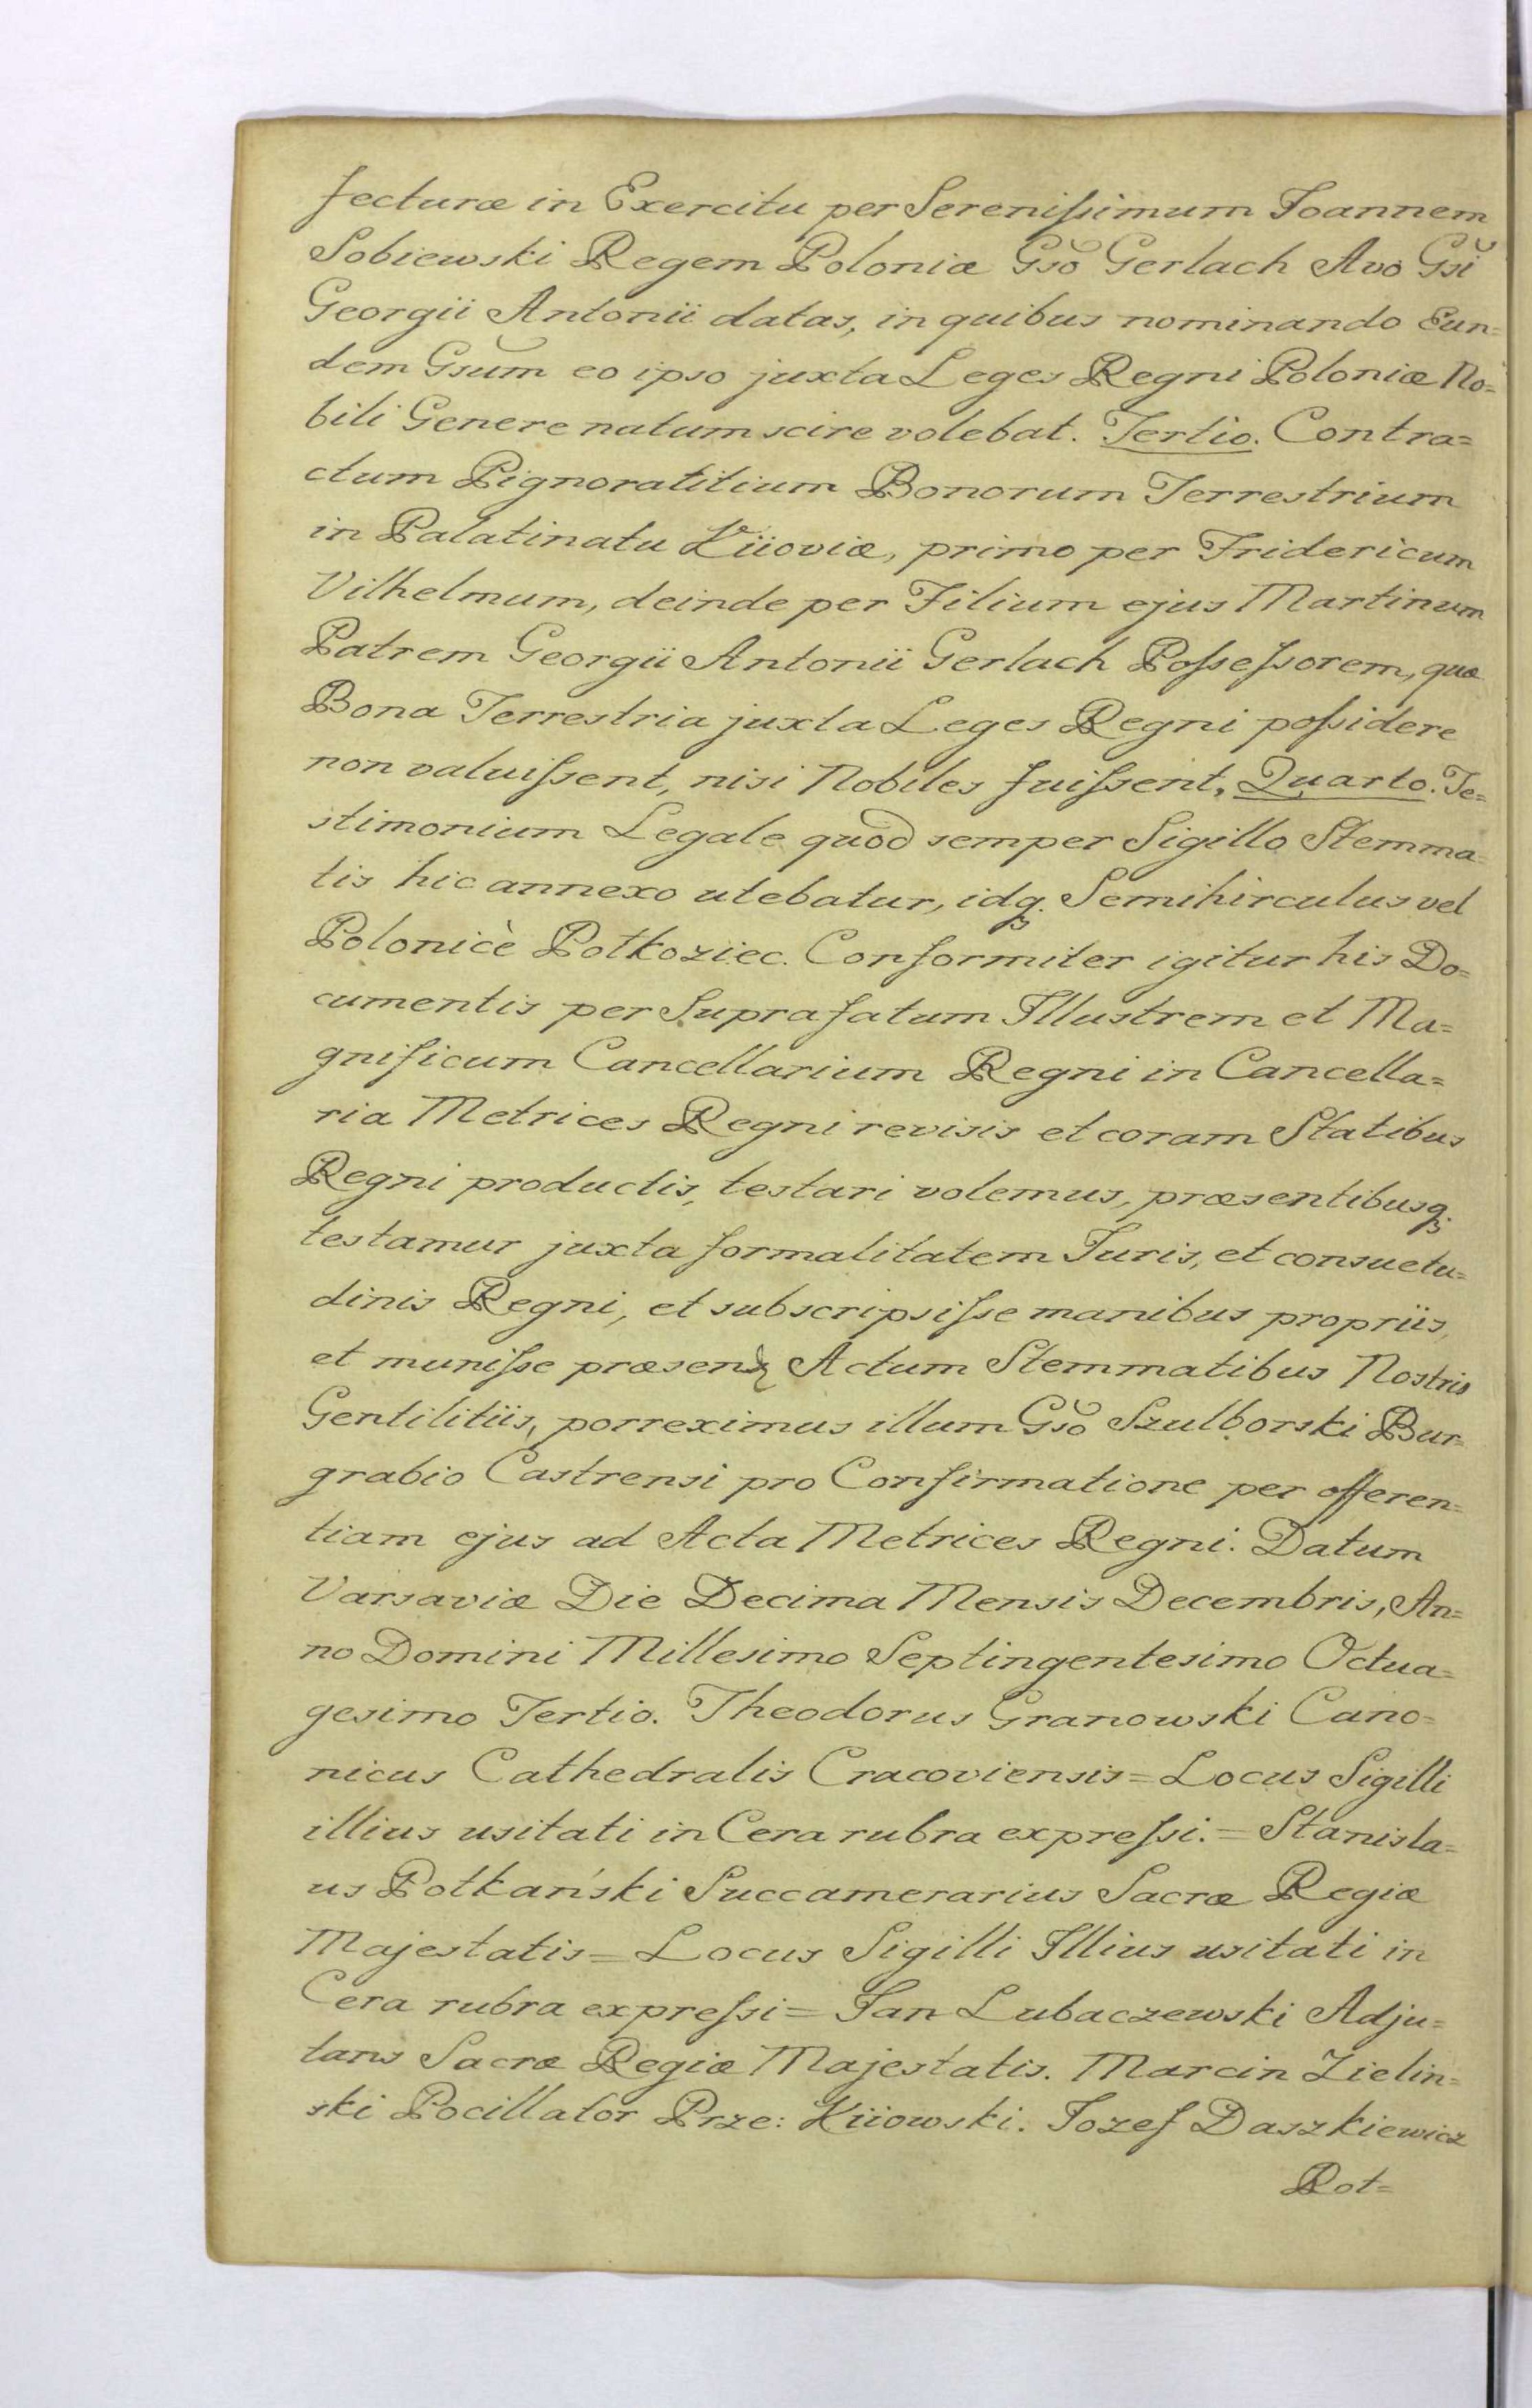 fecturæ in Exercitu per Serenissimum Joannem
Sobiewski Regem Poloniæ Gsō Gerlach Avo Gsi
Georgii Antonii datas, in quibus nominando Eun=
dem Gsūm eo ipso juxta Leges Regni Poloniæ No=
bili Genere natum scire volebat. Tertio. Contra=
ctum Pignoratitium Bonorum Terrestrium
in Palatinatu Kiioviæ, primo per Fridericum
Vilhelmum, deinde per Filium ejus Martinum
Patrem Georgii Antonii Gerlach Possessorem, quæ
Bona Terrestria juxta Leges Regni possidere
non valuissent, nisi Nobiles fuissent, Quarto. Te=
stimonium Legale quod semper Sigillo Stemma=
tis hic annexo utebatur, idq; Semihirculus vel
Polonicè Połkoziec. Conformiter igitur his Do=
cumentis per Suprafatum Illustrem et Ma=
gnificum Cancellarium Regni in Cancella=
ria Metrices Regni revisis et coram Statibus
Regni productis, testari volemus, præsentibusq;
testamur juxta formalitatem Juris, et consuetu=
dinis Regni, et subscripsisse manibus propriis,
et munisse præsens Actum Stemmatibus Nostris
Gentilitiis, porreximus illum Gsō Szulborski Bur=
grabio Castrensi pro Confirmatione per offeren=
tiam ejus ad Acta Metrices Regni. Datum
Varsaviæ Die Decima Mensis Decembris, An=
no Domini Millesimo Septingentesimo Octua=
gesimo Tertio. Theodorus Granowski Cano=
nicus Cathedralis Cracoviensis = Locus Sigilli
illius usitati in Cera rubra expressi. = Stanisla=
us Potkański Succamerarius Sacræ Regiæ
Majestatis = Locus Sigilli Illius usitati in
Cera rubra expressi = Jan Lubaczewski Adju=
tans Sacræ Regiæ Majestatis. Marcin Zielin=
ski Pocillator Prze: Kiiowski. Jozef Daszkiewicz
Rot=